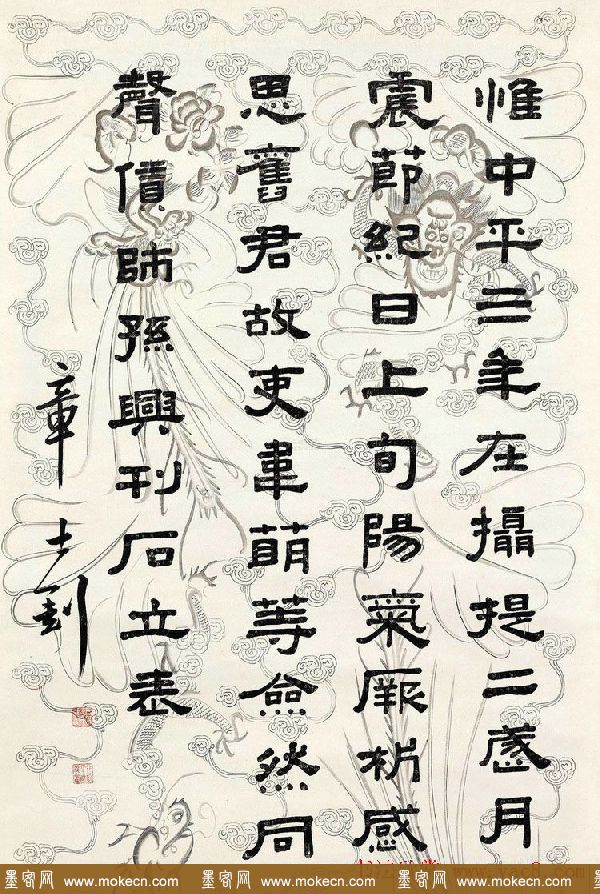 惟中平三年在攝提二歲月
震節紀日上旬陽氣厥析感
思舊君故吏韋萌等僉然同
聲賃師孫興刊石立表
章士釗
墨客网 www.mokecn.com 墨客网 www.mokecn.com 墨客网 www.mokecn.com